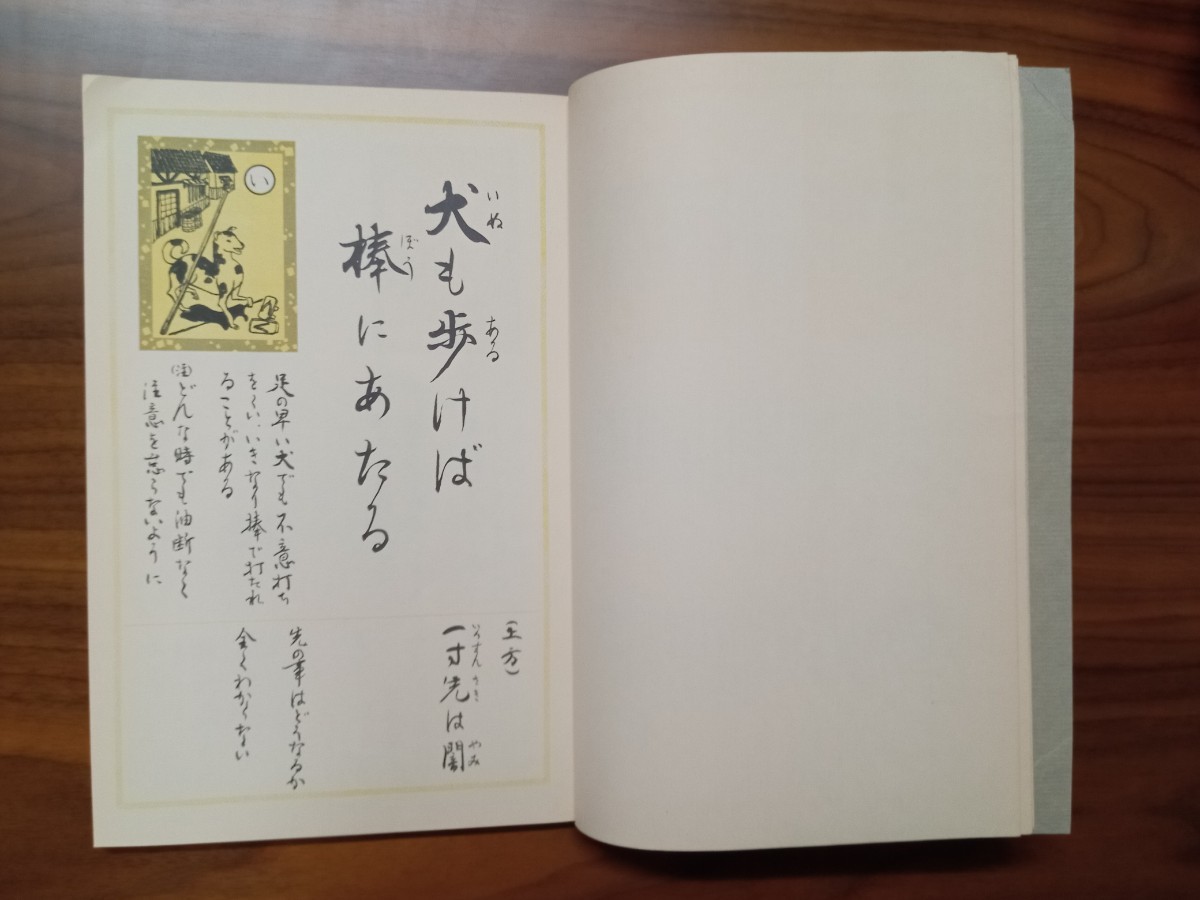 犬も歩けば
いぬ
ある
棒にあたる
ぼう
い
足の早い犬でも不意打ち
をくい、いきなり棒で打たれ
ることがある
(注)どんな時でも油断なく
注意を忘らないように
(上方)
一寸先は闇
いっすんさき
やみ
先の事はどうなるか
全くわからない